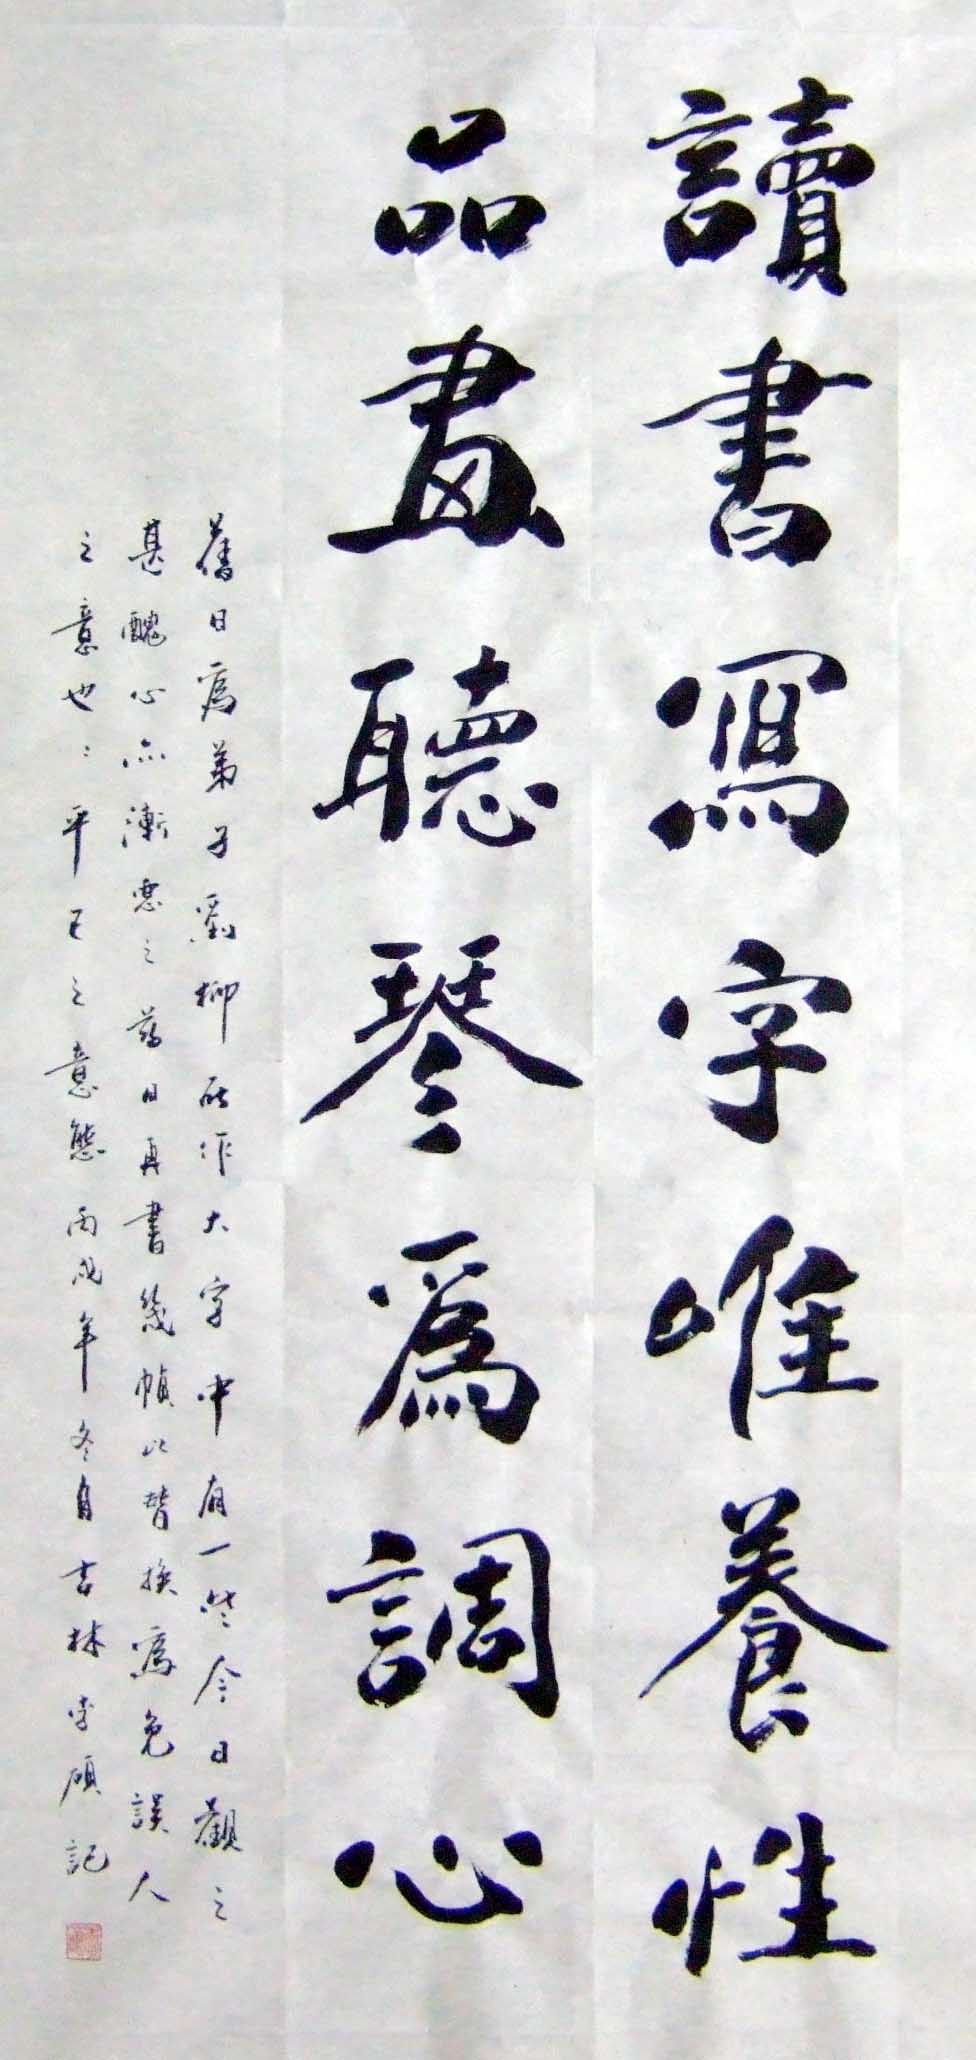 讀書寫字唯養性
品畫聽琴爲調心
舊日爲弟子劉柳所作大字中有一些今日觀之
甚醜心亦漸惡之茲日再書幾幀以替換爲免誤人
之意也平己之意態丙戌年冬自吉林李碩記